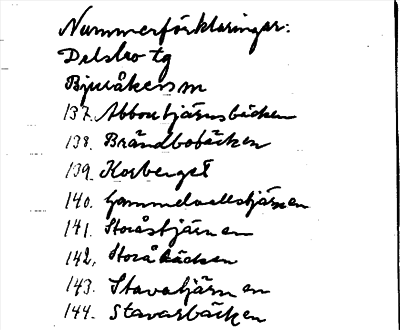 Nummerförklaringar:
Delsbo tg
Bjuråkers sn
137. Abbortjärnsbäcken
138. Brändbobäcken
139. Korberget
140. Gammelvallstjärnen
141. Storåstjärnen
142. Storåbäcken
143. Stavatjärnen
144. Stavarsbäcken